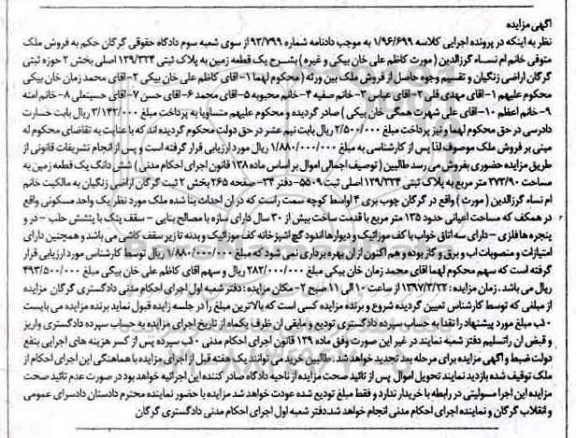 آگهی مزایده
نظر به اینکه در پرونده اجرایی کلاسه ۱/۹۶/۶۹۹ به موجب دادنامه شماره ۹۳/۷۹۹ از سوی شعبه سوم دادگاه حقوقی گرگان حکم به فروش ملک
متوفی خانم ام نساء گرزالدین (مورث کاظم علی خان بیکی و غیره) بشرح یک قطعه زمین به پلاک ثبتی ۱۲۹/۳۲۴ اصلی بخش ۲ حوزه ثبتی
گرگان اراضی زنگیان و تقسیم وجوه حاصل از فروش ملک بین ورثه (محکوم لهما ۱- آقای کاظم علی خان بیکی ۲- آقای محمد زمان خان بیکی
محکوم علیهم ۱- آقای مهدی قلی ۲- آقای عباس ۳- خانم صفیه ۴- خانم محبوبه ۵- آقای محمد ۶- آقای حسن ۷- آقای حسینعلی ۸- خانم آمنه
۹- خانم اعظم ۱۰- آقای علی شهرت همگی خان بیکی) صادر گردیده و محکوم علیهم متساویا به پرداخت مبلغ ۳/۱۴۲/۰۰۰ ریال بابت خسارت
دادرسی در حق محکوم لهما و نیز پرداخت مبلغ ۲/۵۰۰/۰۰۰ ریال بابت نیم عشر در حق دولت محکوم گردیده اند که با عنایت به تقاضای محکوم له
مبنی بر فروش ملک موصوف لذا پس از کارشناسی به مبلغ ۱/۸۸۰/۰۰۰/۰۰۰ ریال مورد ارزیابی قرار گرفته است و پس از انجام تشریفات قانونی از
طریق مزایده حضوری بفروش می رسد طالبین (توصیف اجمالی اموال بر اساس ماده ۱۳۸ قانون اجرای احکام مدنی) شش دانگ یک قطعه زمین به
مساحت ۲۷۳/۹۰ متر مربع به پلاک ثبتی ۱۲۹/۳۲۴ اصلی ثبت ۵۵۰۹- دفتر ۳۴- صفحه ۲۶۵ بخش ۲ ثبت گرگان اراضی زنگیان به مالکیت خانم
ام نساء گرزالدین (مورث) واقع در گرگان چوب بری ۴ اواسط کوچه سمت راست که در آن احداث بنا شده ملک مورد نظر یک واحد مسکونی واقع
در همکف که مساحت اعیانی حدود ۱۳۵ متر مربع با قدمت ساخت بیش از ۳۰ سال دارای سازه با مصالح بنایی - سقف پتک با پشتش حلب - در و
پنجره ها فلزی - دارای سه اتاق خواب با کف موزائیک و دیوارها اندود گچ آشپزخانه کف موزائیک و بدنه تا زیر سقف کاشی می باشد و همچنین دارای
امتیازات و منصوبات آب و برق و گاز بوده و هم اکنون از آن بهره برداری نمی شود که مبلغ ۱/۸۸۰/۰۰۰/۰۰۰ ریال توسط کارشناس مورد ارزیابی قرار
گرفته است که سهم محکوم لهما آقای محمد زمان خان بیکی مبلغ ۲۸۲/۰۰۰/۰۰۰ ریال و سهم آقای کاظم علی خان بیکی مبلغ ۴۹۳/۵۰۰/۰۰۰
ریال می باشد. زمان مزایده: ۱۳۹۷/۳/۲۲ از ساعت ۱۰ الی ۱۱ صبح ۲- مکان مزایده: دفتر شعبه اول اجرای احکام مدنی دادگستری گرگان مزایده
از مبلغی که توسط کارشناس تعیین گردیده شروع و برنده مزایده کسی است که بالاترین مبلغ را در جلسه زایده قبول نماید برنده مزایده می بایست
۱۰٪ مبلغ مورد پیشنهاد را نقدا به حساب سپرده دادگستری تودیع و مابقی آن ظرف یکماه از تاریخ اجرای مزایده به حساب سپرده دادگستری واریز
و قبض آن را تسلیم دفتر شعبه نمایند در غیر این صورت وفق ماده ۱۲۹ قانون اجرای احکام مدنی ۱۰٪ سپرده پس از کسر هزینه های اجرایی بنفع
دولت ضبط و آگهی مزایده برای مرحله بعد تجدید خواهد شد. طالبین خرید می توانند یک هفته قبل از اجرای مزایده با هماهنگی این اجرای احکام از
ملک توقیف شده بازدید نمایند تحویل اموال پس از تائید صحت مزایده از ناحیه دادگاه صادر کننده این اجرائیه خواهد بود در صورت عدم تائید صحت
مزایده این اجرا مسولیتی در رابطه با خریدار ندارد و فقط مبلغ تودیع شده عودت خواهد شد مزایده با حضور نماینده محترم دادستان دادسرای عمومی
و انقلاب گرگان و نماینده اجرای احکام مدنی انجام خواهد شد. دفتر شعبه اول اجرای احکام مدنی دادگستری گرگان